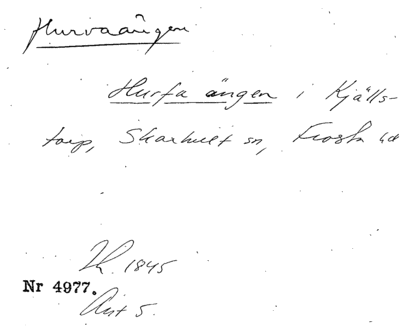 Hurvaängen
Hurfa ängen i Kjälls-
torp, Skarhult sn, Frosta hd
Lh. 1845
Nr 4977.
Avt 5.